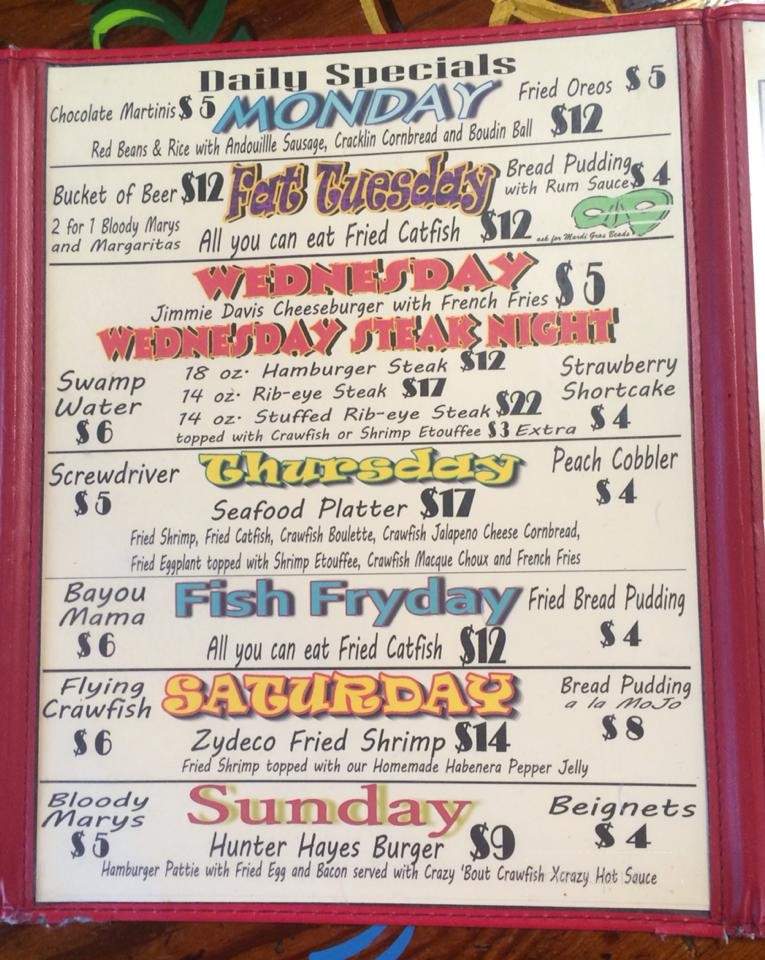 Daily Specials
Chocolate Martinis $ 5 MONDAY Fried Oreos $ 5
Red Beans & Rice with Andouillle Sausage, Cracklin Cornbread and Boudin Ball $12
Bucket of Beer $12 Fat Tuesday Bread Pudding
with Rum Sauce $ 4
2 for 1 Bloody Marys
and Margaritas
All you can eat Fried Catfish $12
ask for Mardi Gras Beads
WEDNESDAY
Jimmie Davis Cheeseburger with French Fries $5
WEDNESDAY STEAK NIGHT
Swamp
Water
$6
18 oz. Hamburger Steak $12
14 oz. Rib-eye Steak $17
14 oz. Stuffed Rib-eye Steak $22
topped with Crawfish or Shrimp Etouffee $3 Extra
Strawberry
Shortcake
$ 4
Screwdriver
$5
Thursday
Peach Cobbler
$ 4
Seafood Platter $17
Fried Shrimp, Fried Catfish, Crawfish Boulette, Crawfish Jalapeno Cheese Cornbread,
Fried Eggplant topped with Shrimp Etouffee, Crawfish Macque Choux and French Fries
Bayou
Mama
$6
Fish Fryday
Fried Bread Pudding
$ 4
All you can eat Fried Catfish $12
Flying
Crawfish
$6
SATURDAY
Bread Pudding
a la MoJo
$ 8
Zydeco Fried Shrimp $14
Fried Shrimp topped with our Homemade Habenera Pepper Jelly
Bloody
Marys
$5
Sunday
Beignets
$ 4
Hunter Hayes Burger $9
Hamburger Pattie with Fried Egg and Bacon served with Crazy 'Bout Crawfish Xcrazy Hot Sauce